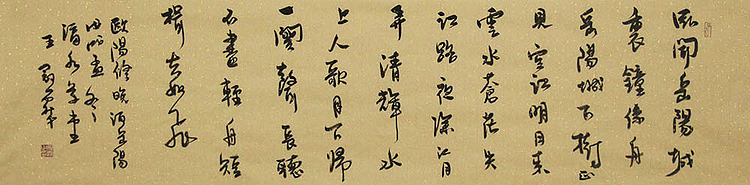 臥聞岳陽城
裏鐘係舟
岳陽城下樹正
見空江明月來
雲水蒼茫失
江路夜深江月
弄清輝水
上人歌月下歸
一闋聲長聽
不盡輕舟短
楫去如飛
歐陽修晚泊岳陽
王